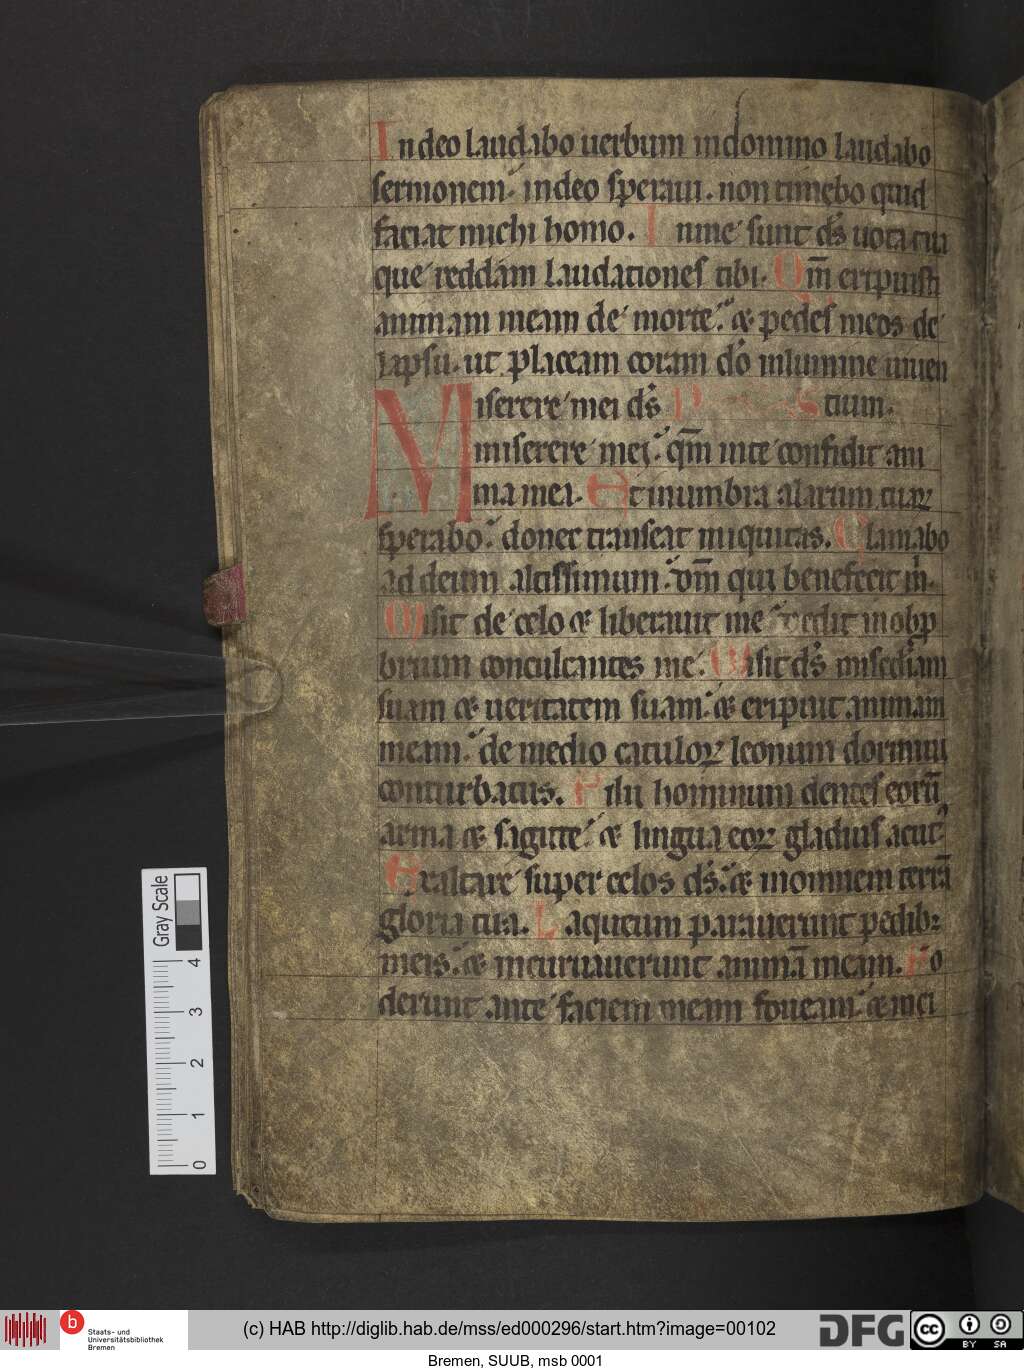 In deo laudabo uerbum in domino laudabo
sermonem. in deo speraui. non timebo quid
faciat michi homo. In me sunt ds̄ uota tua
que reddam laudationes tibi. Qm̄ eripuisti
animam meam de morte. & pedes meos de
lapsu. ut placeam coram dō in lumine uiuen
tium.
Miserere mei ds̄
miserere mei. qm̄ in te confidit ani
ma mea. Et in umbra alarum tuaꝝ
sperabo. donec transeat iniquitas. Clamabo
ad deum altissimum. dm̄ qui benefecit m̄.
Misit de celo & liberauit me. dedit in obp̄
brium conculcantes me. Misit ds̄ misc̄diam
suam & ueritatem suam. & eripuit animam
meam. de medio catuloꝝ leonum dormiui
conturbatus. Filii hominum dentes eorū
arma & sagitte. & lingua eoꝝ gladius acut᷒
Exaltare super celos ds̄. & in omnem terrā
gloria tua. Laqueum parauerunt pedib;
meis. & incuruauerunt animā meam. Fo
derunt ante faciem meam foueam. & inci
Gray Scale
4
3
2
1
0
b
Staats- und
Universitätsbibliothek
Bremen
(c) HAB http://diglib.hab.de/mss/ed000296/start.htm?image=00102
DFG
cc
BY SA
Bremen, SUUB, msb 0001